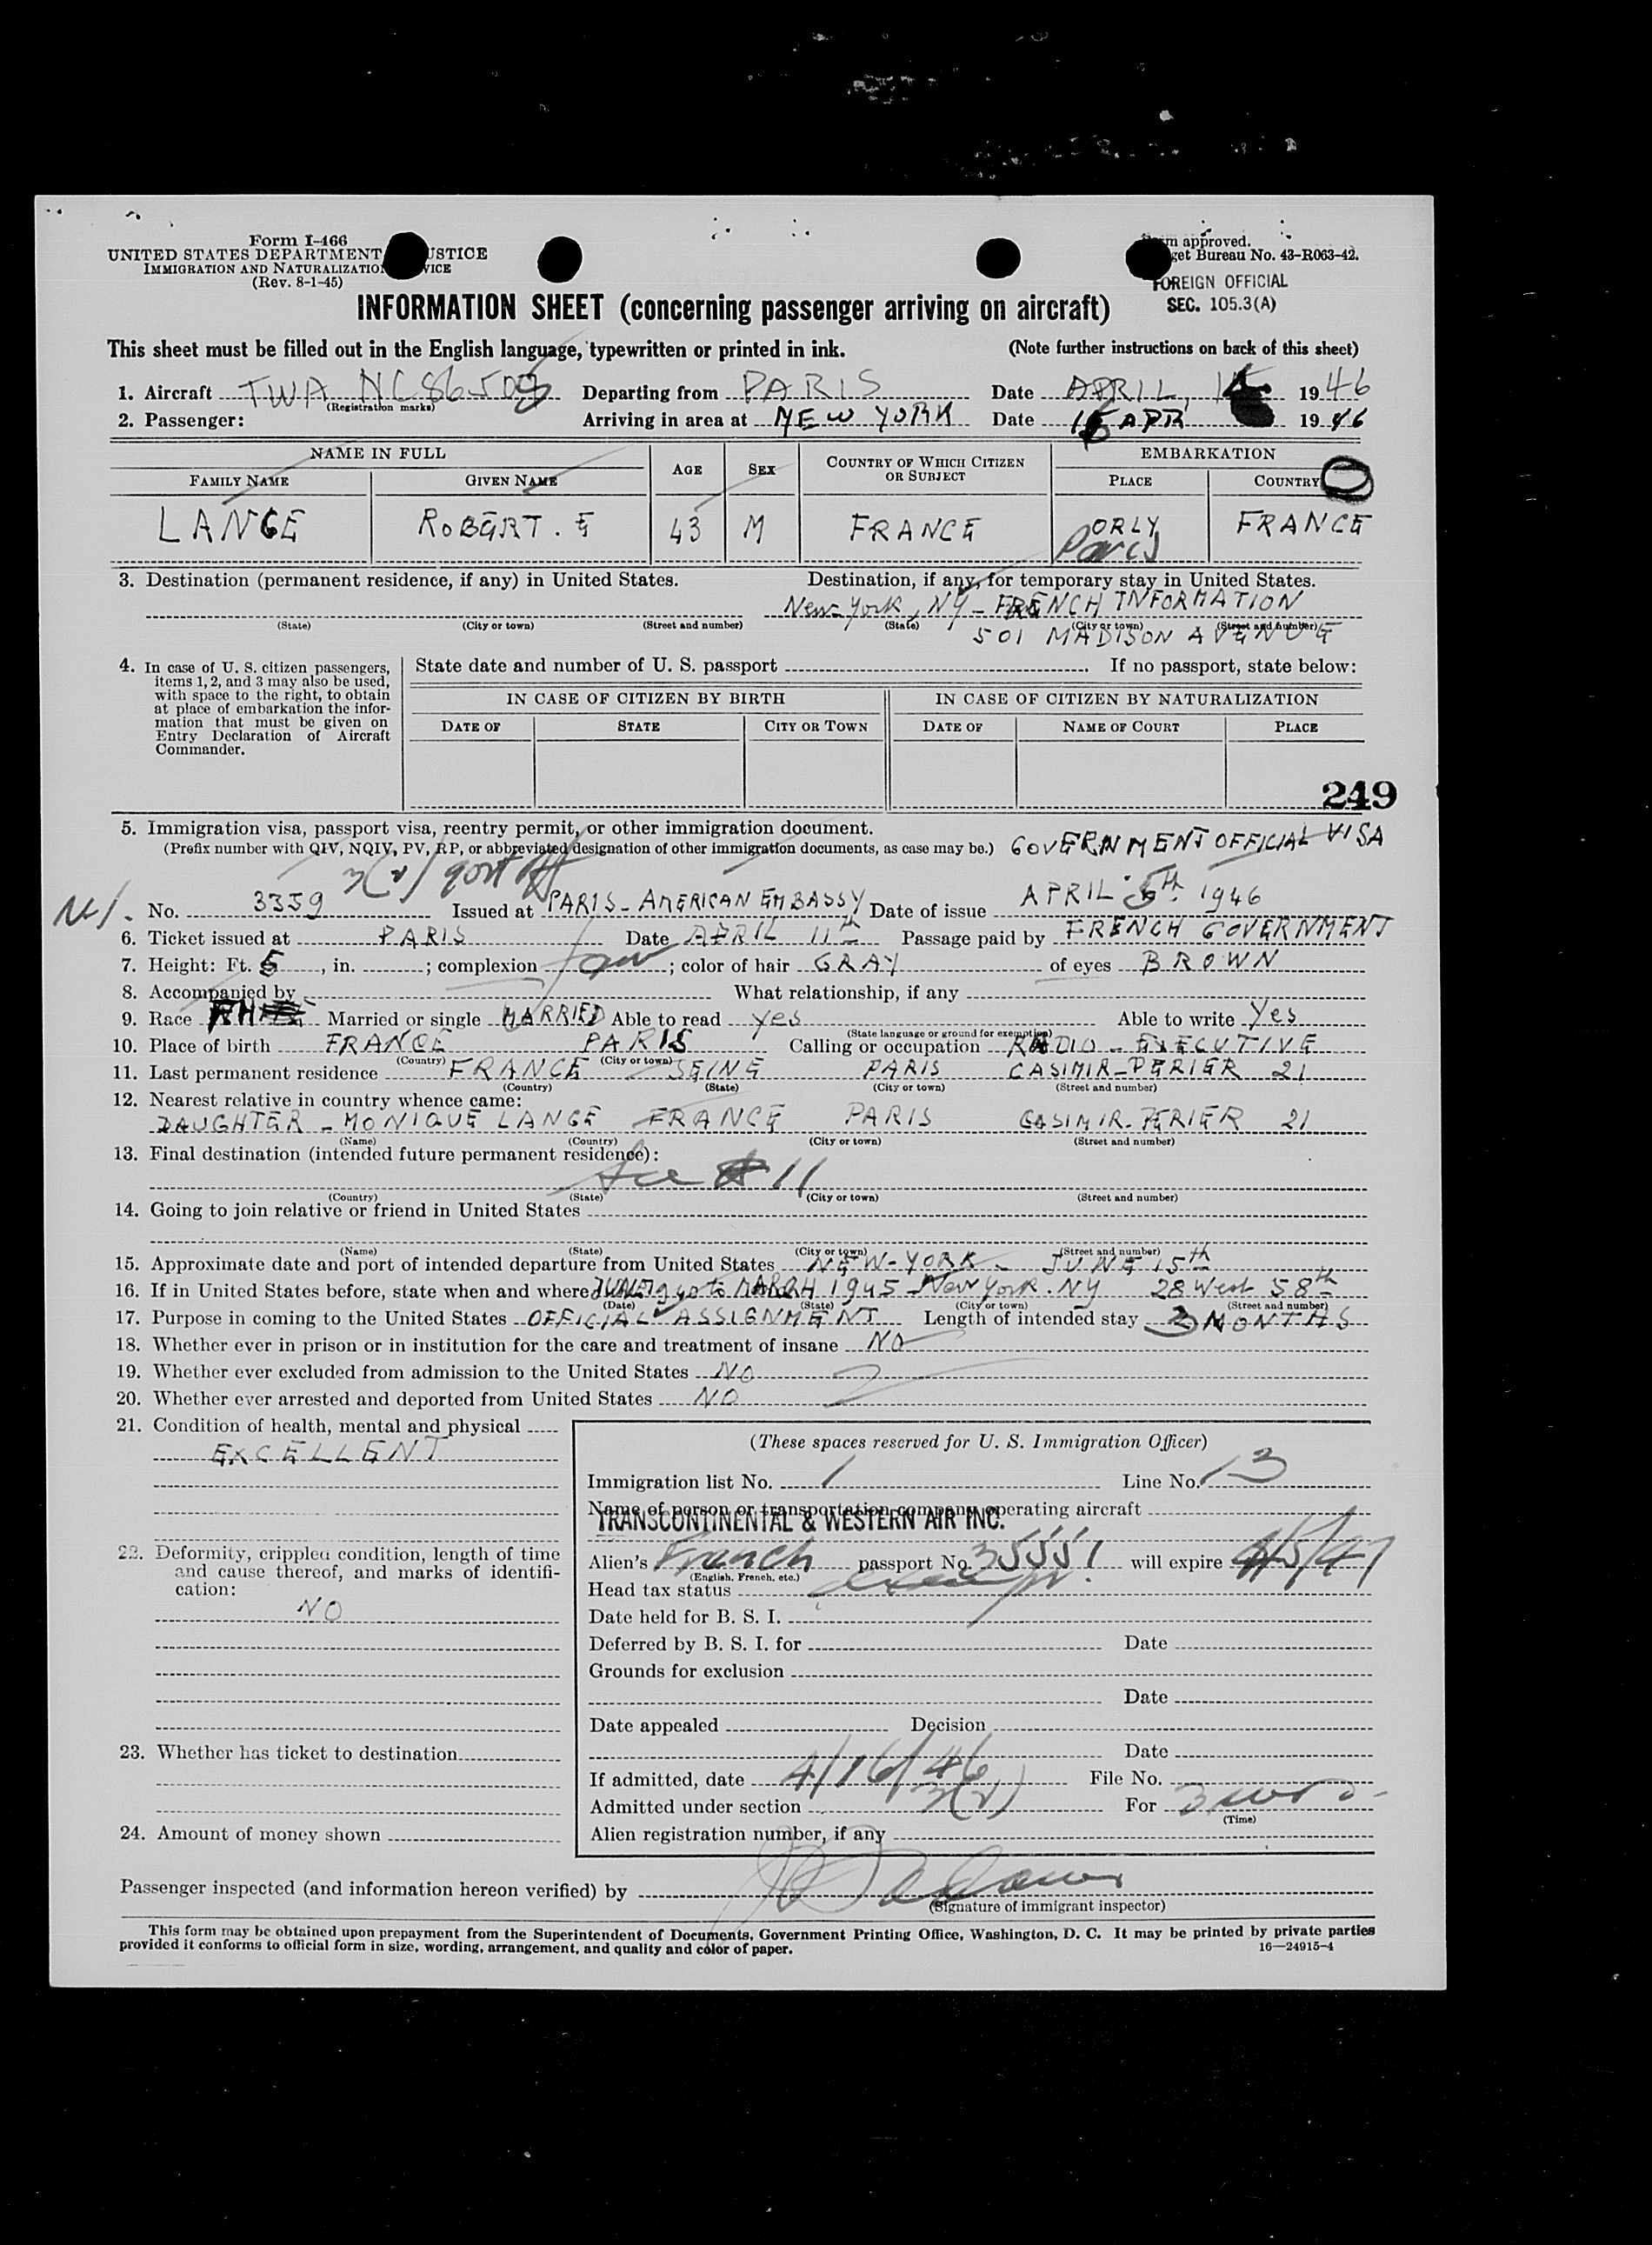 Form I-466
UNITED STATES DEPARTMENT USTICE
IMMIGRATION AND NATURALIZATION VICE
(Rev. 8-1-45)
m approved.
get Bureau No. 43-R063-42.
FOREIGN OFFICIAL
SEC. 105.3(A)
INFORMATION SHEET (concerning passenger arriving on aircraft)
This sheet must be filled out in the English language, typewritten or printed in ink. (Note further instructions on back of this sheet)
1. Aircraft TWA Departing from PARIS Date APRIL, 1946
(Registration marks)
2. Passenger: Arriving in area at NEW YORK Date APR 1946
NAME IN FULL AGE SEX COUNTRY OF WHICH CITIZEN OR SUBJECT EMBARKATION
FAMILY NAME GIVEN NAME PLACE COUNTRY
LANGE ROBERT. E 43 M FRANCE ORLY FRANCE
Paris
3. Destination (permanent residence, if any) in United States. Destination, if any, for temporary stay in United States.
New-York, NY - FRENCH INFORMATION
(State) (City or town) (Street and number) (State) (City or town) (Street and number)
501 MADISON AVENUE
4. In case of U. S. citizen passengers, items 1, 2, and 3 may also be used, with space to the right, to obtain at place of embarkation the information that must be given on Entry Declaration of Aircraft Commander.
State date and number of U. S. passport If no passport, state below:
IN CASE OF CITIZEN BY BIRTH IN CASE OF CITIZEN BY NATURALIZATION
DATE OF STATE CITY OR TOWN DATE OF NAME OF COURT PLACE
249
5. Immigration visa, passport visa, reentry permit, or other immigration document.
(Prefix number with QIV, NQIV, PV, RP, or abbreviated designation of other immigration documents, as case may be.) GOVERNMENT OFFICIAL VISA
No. 3359 Issued at PARIS - AMERICAN EMBASSY Date of issue APRIL 5th 1946
6. Ticket issued at PARIS Date APRIL 11th Passage paid by FRENCH GOVERNMENT
7. Height: Ft. 5, in. ; complexion ; color of hair GRAY of eyes BROWN
8. Accompanied by What relationship, if any
9. Race Married or single MARRIED Able to read yes Able to write Yes
(State language or ground for exemption)
10. Place of birth FRANCE PARIS Calling or occupation RADIO - EXECUTIVE
(Country) (City or town)
11. Last permanent residence FRANCE SEINE PARIS CASIMIR-PERIER 21
(Country) (State) (City or town) (Street and number)
12. Nearest relative in country whence came:
DAUGHTER - MONIQUE LANGE FRANCE PARIS CASIMIR-PERIER 21
(Name) (Country) (City or town) (Street and number)
13. Final destination (intended future permanent residence):
See # 11
(Country) (State) (City or town) (Street and number)
14. Going to join relative or friend in United States
(Name) (State) (City or town) (Street and number)
15. Approximate date and port of intended departure from United States NEW-YORK - JUNE 15th
16. If in United States before, state when and where JUNE 1940 to MARCH 1945 - New York. NY 28 West 58th
(Date) (State) (City or town) (Street and number)
17. Purpose in coming to the United States OFFICIAL ASSIGNMENT Length of intended stay 3 MONTHS
18. Whether ever in prison or in institution for the care and treatment of insane NO
19. Whether ever excluded from admission to the United States NO
20. Whether ever arrested and deported from United States NO
21. Condition of health, mental and physical
EXCELLENT
22. Deformity, crippled condition, length of time and cause thereof, and marks of identification:
NO
23. Whether has ticket to destination
24. Amount of money shown
(These spaces reserved for U. S. Immigration Officer)
Immigration list No. 1 Line No. 13
Name of person or transportation company operating aircraft
TRANSCONTINENTAL & WESTERN AIR INC.
Alien's French passport No. 35551 will expire 4/5/47
(English, French, etc.)
Head tax status exempt
Date held for B. S. I.
Deferred by B. S. I. for Date
Grounds for exclusion
Date
Date appealed Decision
Date
If admitted, date 4/16/46 File No.
Admitted under section 3(1) For 3 mos
(Time)
Alien registration number, if any
Passenger inspected (and information hereon verified) by
(Signature of immigrant inspector)
This form may be obtained upon prepayment from the Superintendent of Documents, Government Printing Office, Washington, D. C. It may be printed by private parties
provided it conforms to official form in size, wording, arrangement, and quality and color of paper. 16—24915-4